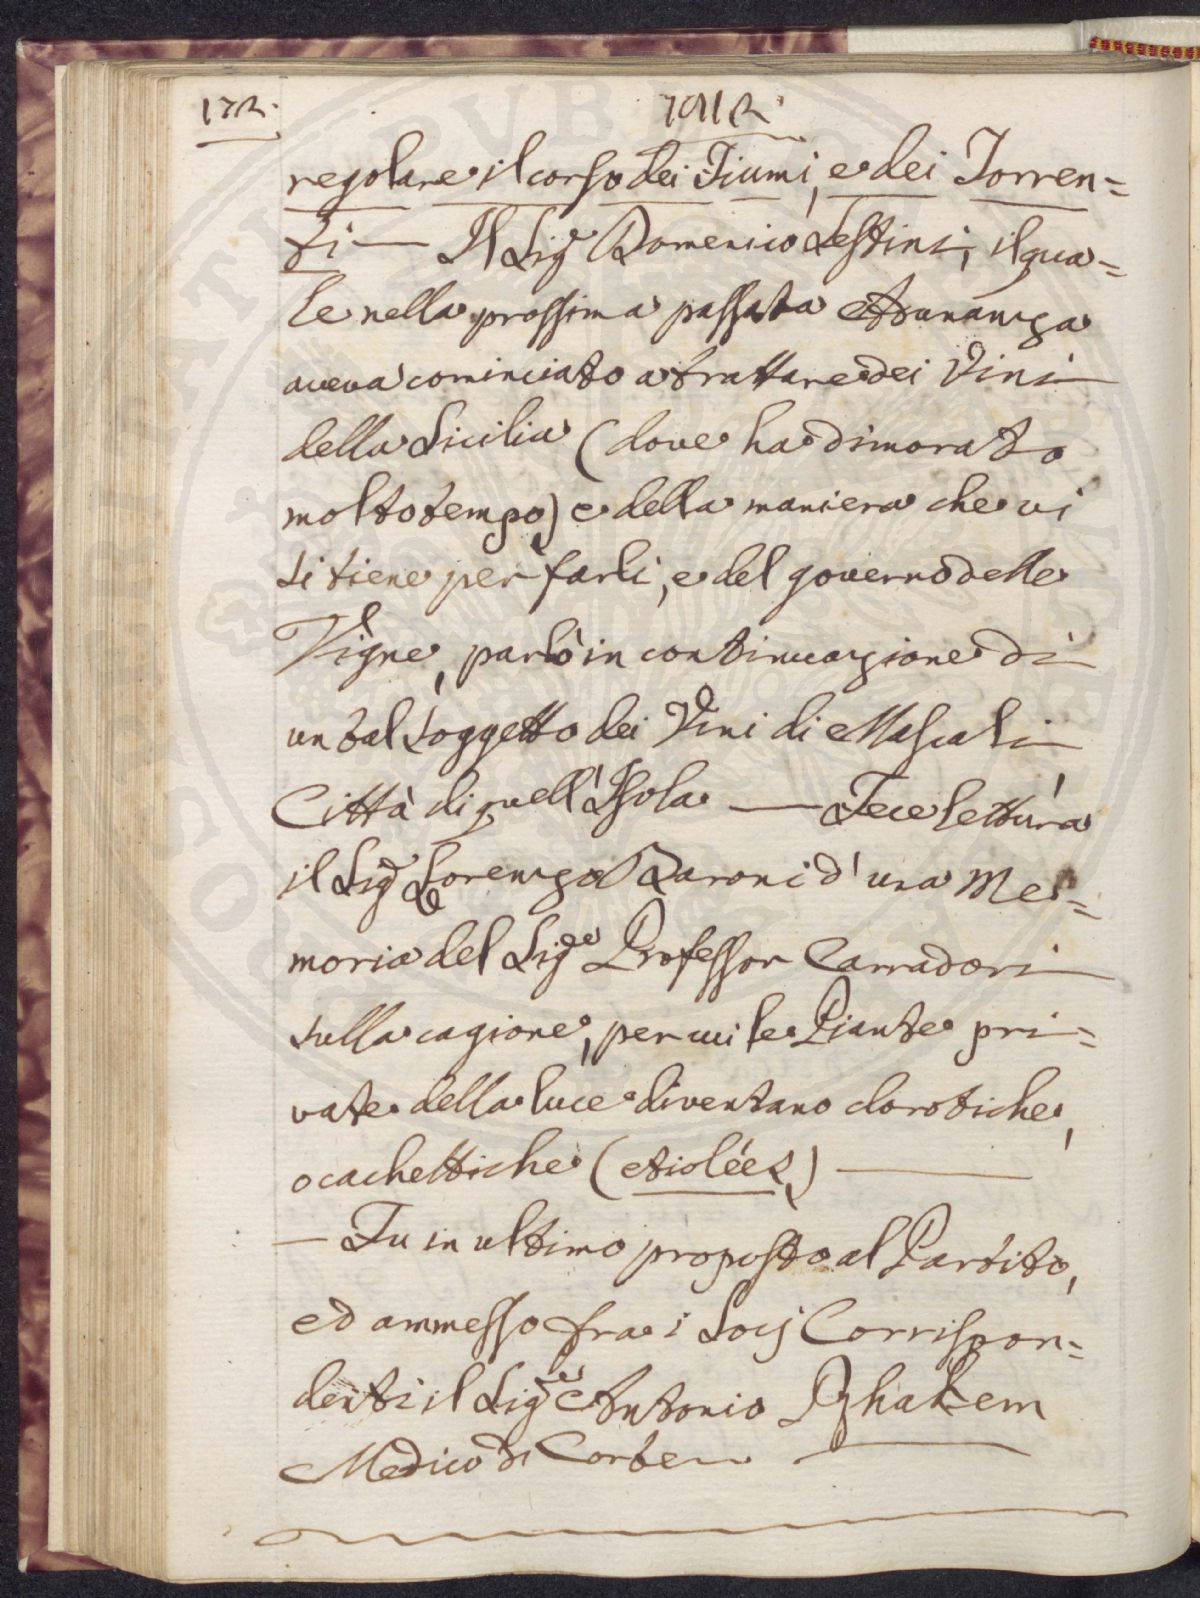 172.
1812
regolare il corso dei Fiumi, e dei Torren=
ti — Il Sig.r Domenico Sestini, il qua=
le nella prossima passata Adunanza
aveva cominciato a trattare dei Vini
della Sicilia (dove ha dimorato
molto tempo) e della maniera che vi
si tiene per farli, e del governo delle
Vigne, parlò in continuazione di
un tal soggetto dei Vini di Mascali
Città di quell'Isola — Fece lettura
il Sig.r Lorenzo Baroni d'una Me=
moria del Sig.re Professor Carradori
sulla cagione, per cui le Piante pri=
vate della luce diventano clorotiche,
o cachettiche (etiolées) —
— Fu in ultimo proposto al Partito,
ed ammesso fra i Socj Corrispon=
denti il Sig.re Antonio
Medico di